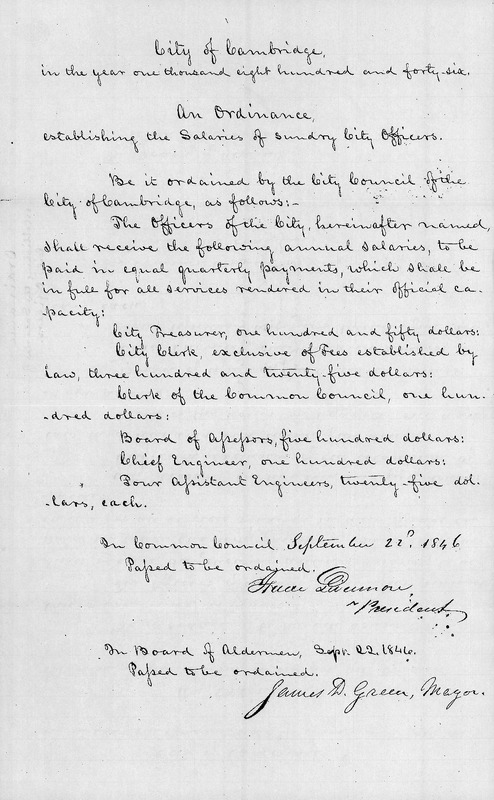 City of Cambridge,
in the year one thousand eight hundred and forty-six.
An Ordinance,
establishing the Salaries of sundry City Officers.
Be it ordained by the City Council of the
City of Cambridge, as follows:-
The Officers of the City, hereinafter named,
shall receive the following annual salaries, to be
paid in equal quarterly payments, which shall be
in full for all services rendered in their official ca-
pacity:
City Treasurer, one hundred and fifty dollars:
City Clerk, exclusive of Fees established by
law, three hundred and twenty-five dollars:
Clerk of the Common Council, one hun-
-dred dollars:
Board of Aſseſsors, five hundred dollars:
Chief Engineer, one hundred dollars:
Four Aſsistant Engineers, twenty-five dol-
-lars, each.
In Common Council September 22d. 1846
Paſsed to be ordained.
Isaac Livermore,
President.
In Board of Aldermen, Sept. 22. 1846.
Paſsed to be ordained.
James D. Green, Mayor.